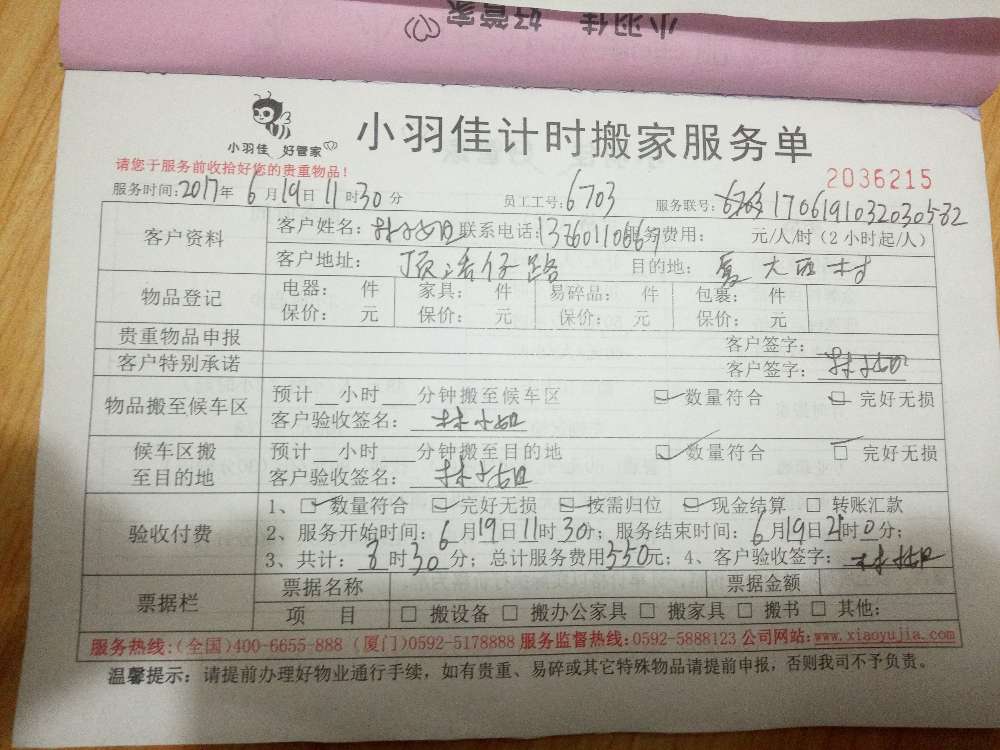 小羽佳 好管家
小羽佳 好管家
小羽佳计时搬家服务单
请您于服务前收拾好您的贵重物品！
2036215
服务时间：2017年6月19日11时30分 员工工号：6703 服务联号：1706191032030582
客户资料 客户姓名：林小姐 联系电话： 服务费用： 元/人/时（2小时起/人）
客户地址： 顶 仔路 目的地：厦大西村
物品登记 电器： 件 家具： 件 易碎品： 件 包裹： 件
保价： 元 保价： 元 保价： 元 保价： 元
贵重物品申报 客户签字：
客户特别承诺 客户签字：林小姐
物品搬至候车区 预计__小时___分钟搬至候车区 ☑数量符合 ☑完好无损
客户验收签名：林小姐
候车区搬至目的地 预计__小时___分钟搬至目的地 ☑数量符合 ☑完好无损
客户验收签名：林小姐
验收付费 1、☑数量符合 ☑完好无损 ☑按需归位 ☑现金结算 □转账汇款
2、服务开始时间：6月19日11时30分；服务结束时间：6月19日 时0分；
3、共计：8时30分；总计服务费用550元；4、客户验收签字：林小姐
票据栏 票据名称 票据金额
项 目 □搬设备 □搬办公家具 □搬家具 □搬书 □其他：
服务热线：(全国)400-6655-888 (厦门)0592-5178888 服务监督热线：0592-5888123 公司网站：www.xiaoyujia.com
温馨提示：请提前办理好物业通行手续，如有贵重、易碎或其它特殊物品请提前申报，否则我司不予负责。